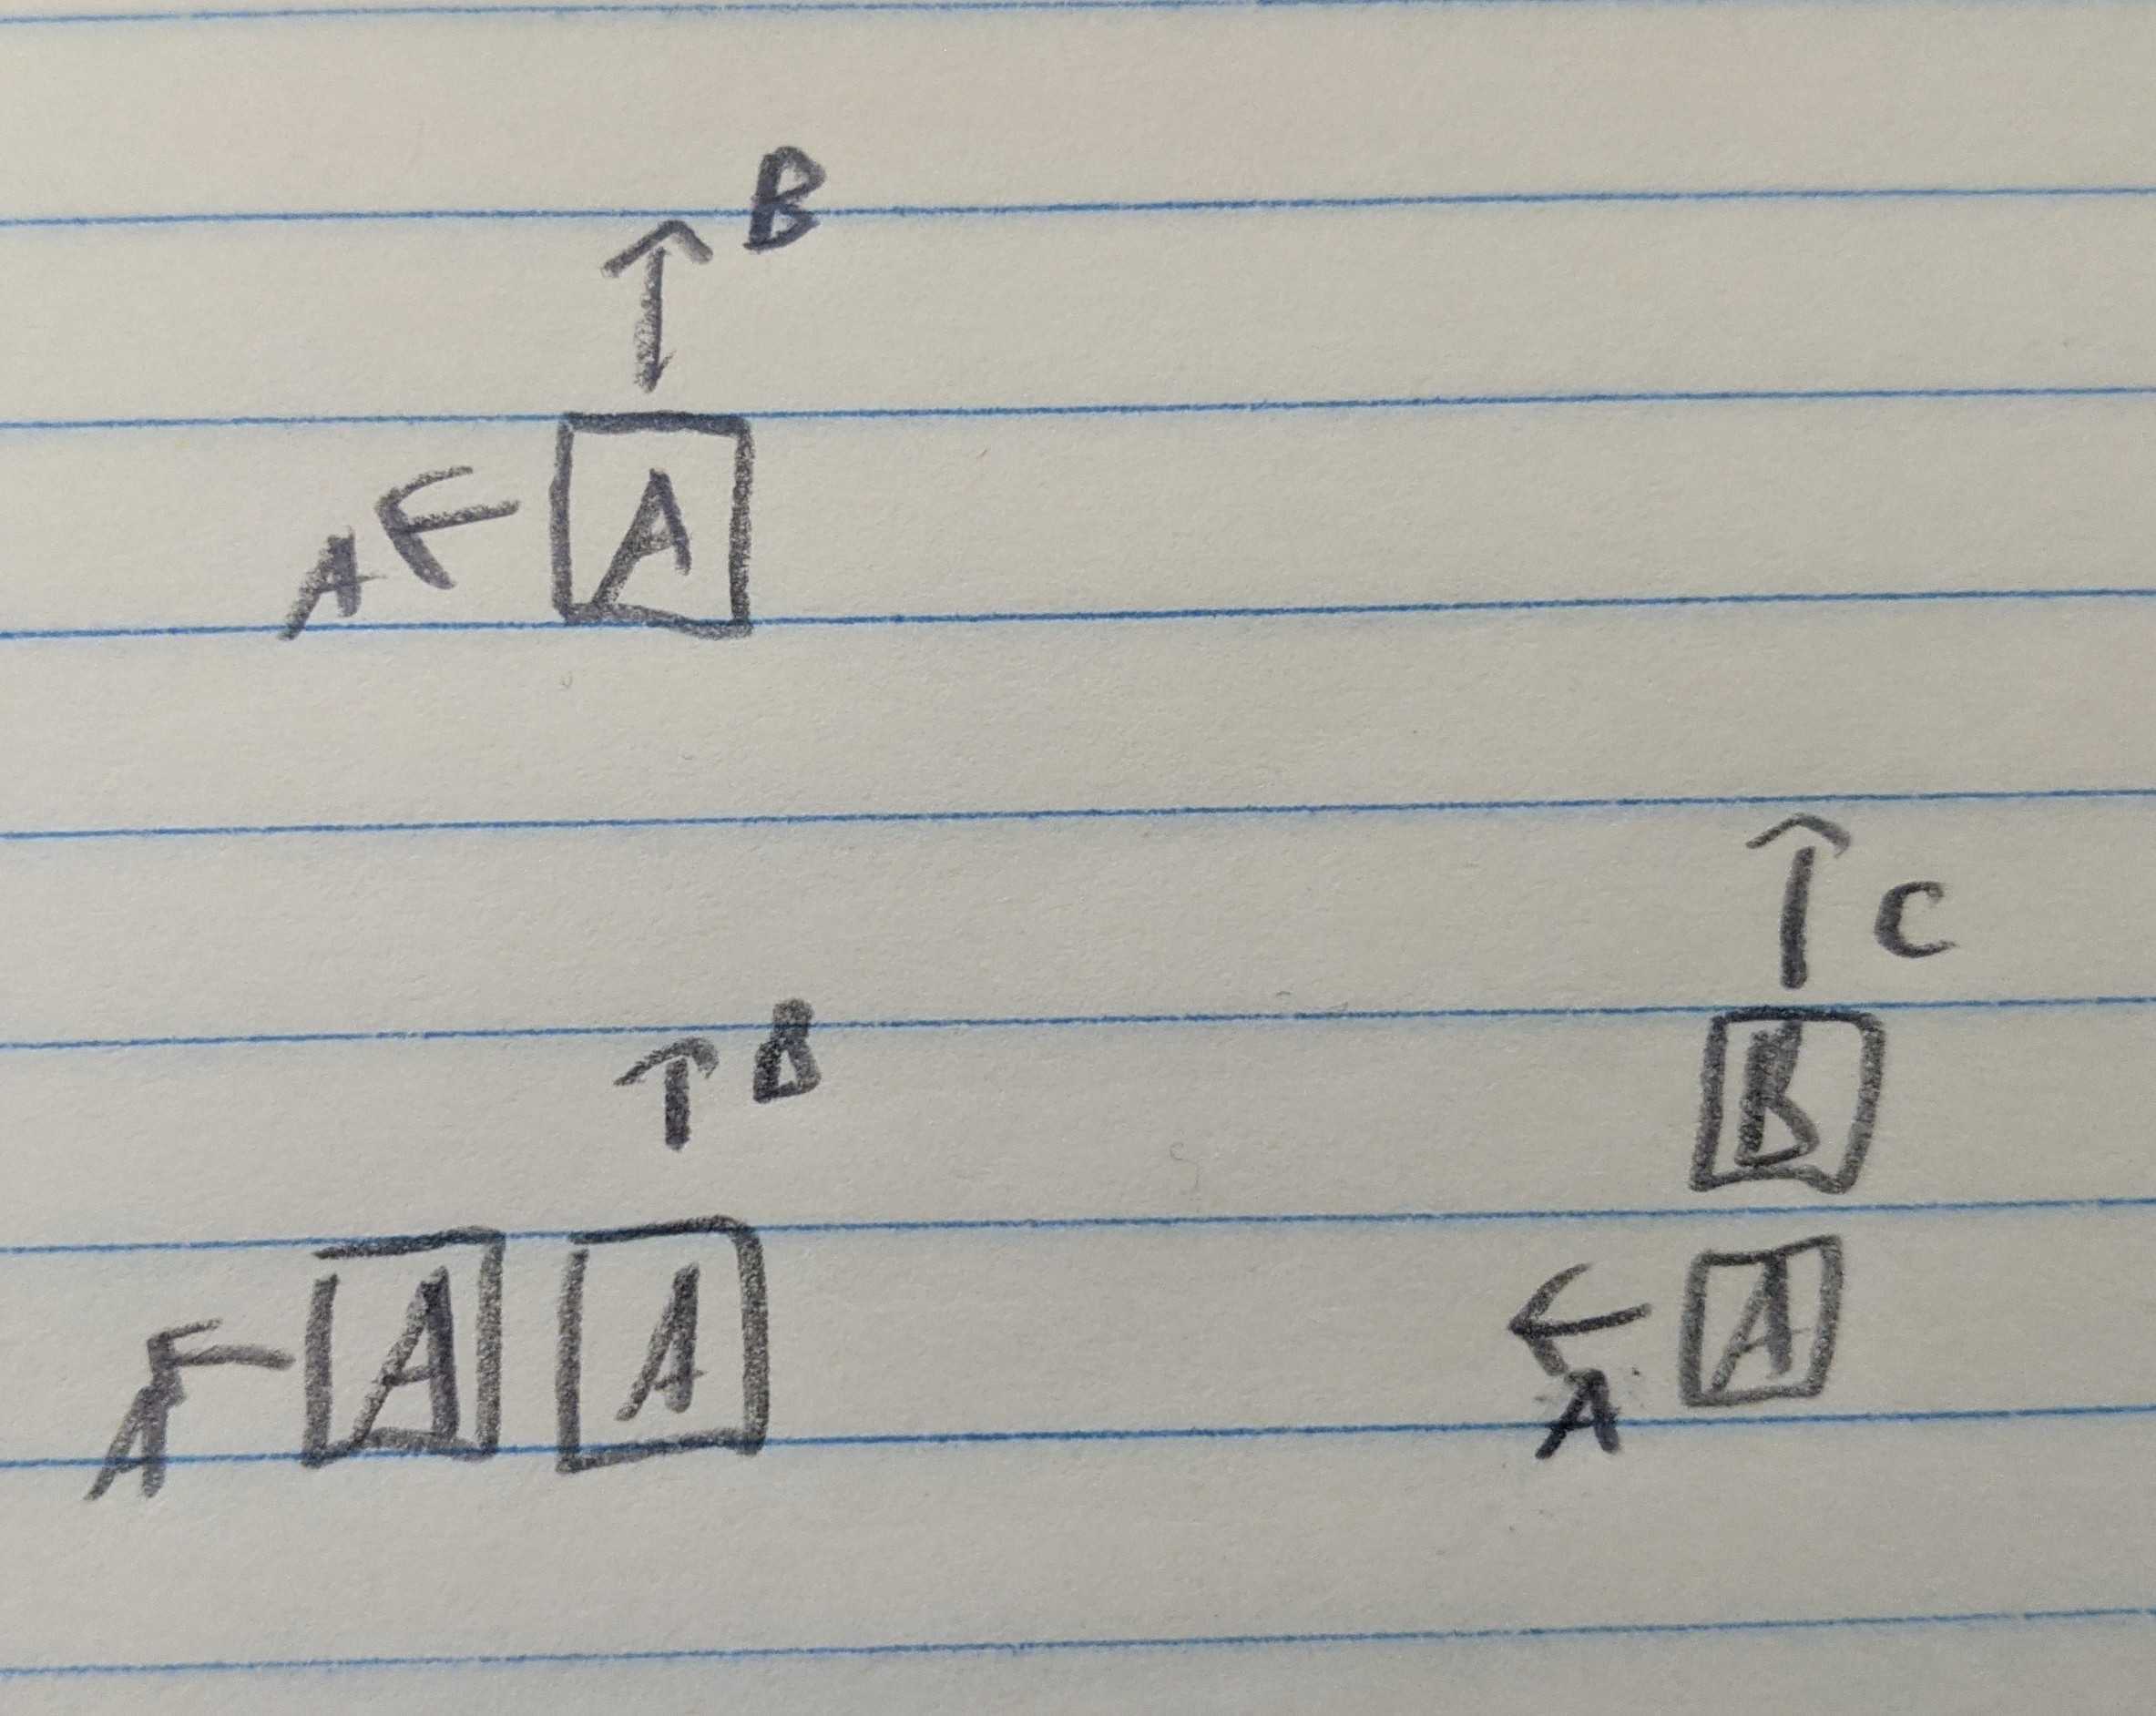 B
A A
B
A A A
C
B
A A